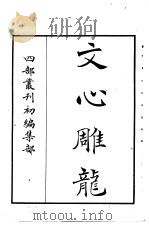 文心雕龍
四部叢刊初編集部
www.toopoo.com